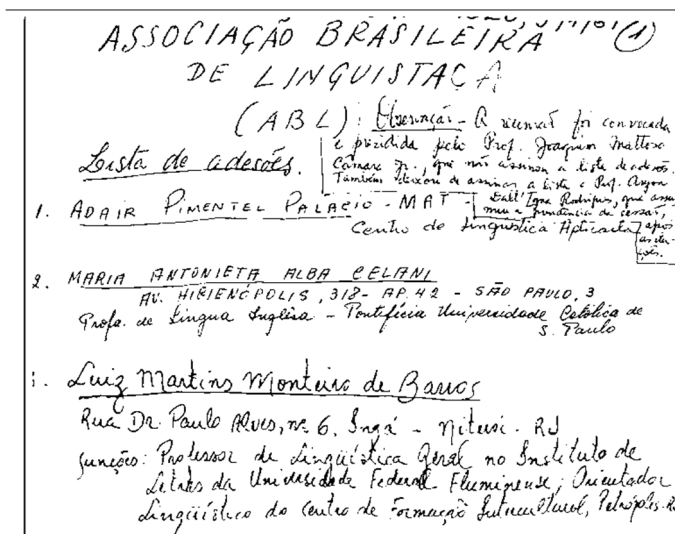 ASSOCIAÇÃO BRASILEIRA (1)
DE LINGUISTACA
(ABL)
Observação - A reunião foi convocada
e prezidida pelo Prof. Joaquim Mattoso
Câmara Jr., que não assinou a lista de adesões.
Também deixou de assinar a lista o Prof. Aryon
Dall'Igna Rodrigues, que assu-
miu a presidência da sessão,
após
as elei-
ções.
Lista de adesões.
1. ADAIR PIMENTEL PALÁCIO - MAT -
Centro de Linguística Aplicada
2. MARIA ANTONIETA ALBA CELANI
AV. HIGIENÓPOLIS, 318 - AP. 42 - SÃO PAULO, 3
Profa. de Língua Inglêsa - Pontifícia Universidade Católica de
S. Paulo
Luiz Martins Monteiro de Barros
Rua Dr. Paulo Alves, nº 6. Ingá - Niterói - RJ
funções: Professor de Lingüística Geral no Instituto de
Letras da Universidade Federal Fluminense; Orientador
Lingüístico do Centro de Formação Intercultural, Petrópolis.